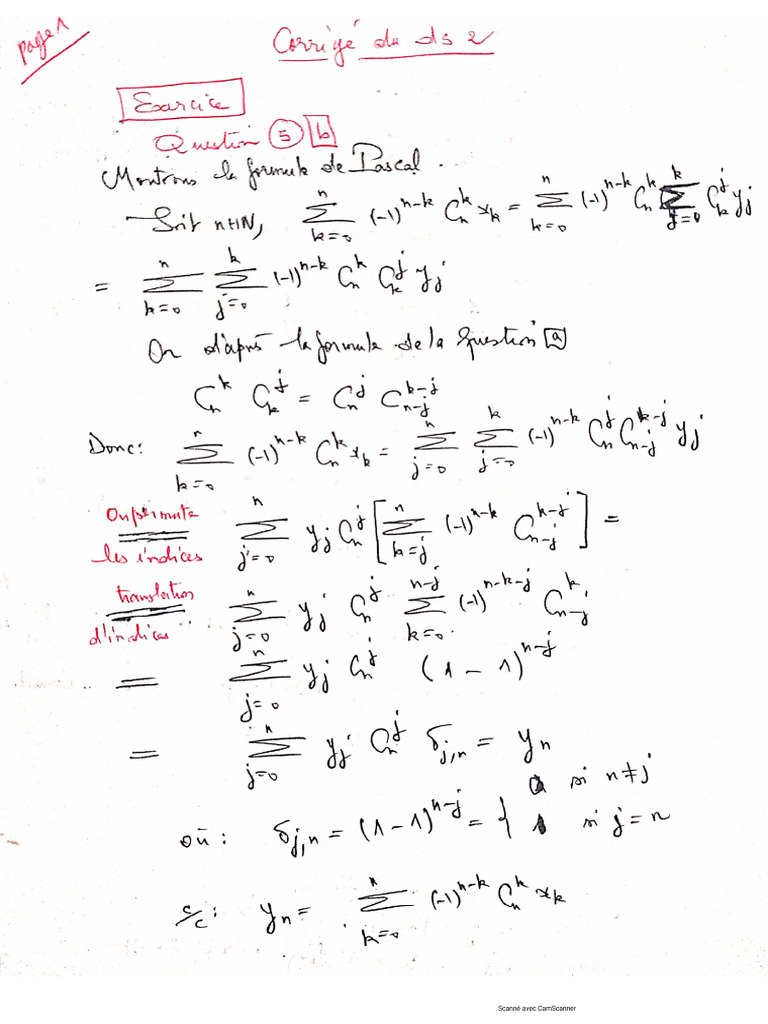 page 1
Corrigé du ds 2
Exercice
Question ⑤ b
Montrons la formule de Pascal.
Soit n∈IN, $\sum_{k=0}^{n} (-1)^{n-k} C_n^k x_k = \sum_{k=0}^{n} (-1)^{n-k} C_n^k \sum_{j=0}^{k} C_k^j y_j$
$= \sum_{k=0}^{n} \sum_{j=0}^{k} (-1)^{n-k} C_n^k C_k^j y_j$
Or d'après la formule de la Question a
$C_n^k C_k^j = C_n^j C_{n-j}^{k-j}$
Donc: $\sum_{k=0}^{n} (-1)^{n-k} C_n^k x_k = \sum_{j=0}^{n} \sum_{j=0}^{k} (-1)^{n-k} C_n^j C_{n-j}^{k-j} y_j$
On permute les indices $= \sum_{j=0}^{n} y_j C_n^j \left[ \sum_{k=j}^{n} (-1)^{n-k} C_{n-j}^{k-j} \right] =$
translation d'indices $= \sum_{j=0}^{n} y_j C_n^j \sum_{k=0}^{n-j} (-1)^{n-k-j} C_{n-j}^{k}$
$= \sum_{j=0}^{n} y_j C_n^j (1-1)^{n-j}$
$= \sum_{j=0}^{n} y_j C_n^j \delta_{j,n} = y_n$
où: $\delta_{j,n} = (1-1)^{n-j} = \begin{cases} 0 & si\ n \neq j \\ 1 & si\ j = n \end{cases}$
c/c: $y_n = \sum_{k=0}^{n} (-1)^{n-k} C_n^k x_k$
Scanné avec CamScanner